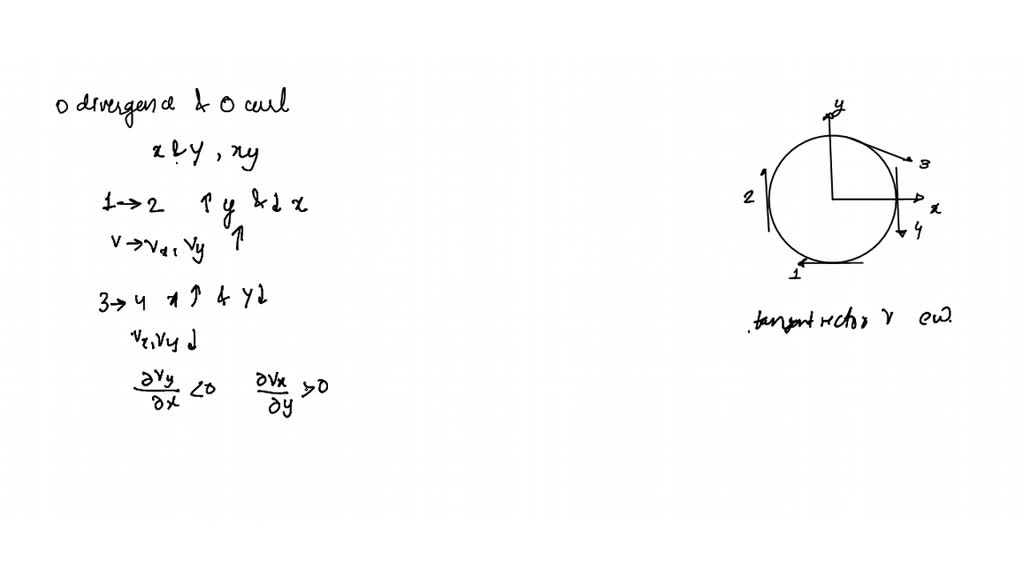 0 divergence & 0 curl
x & y, xy
1→2 ↑ y & ↓ x
v→vx, vy ↑
3→4 x ↑ & y↓
vx, vy ↓
∂vy/∂x <0 ∂vx/∂y >0
y
3
2
x
4
1
.tangent vector v cw.